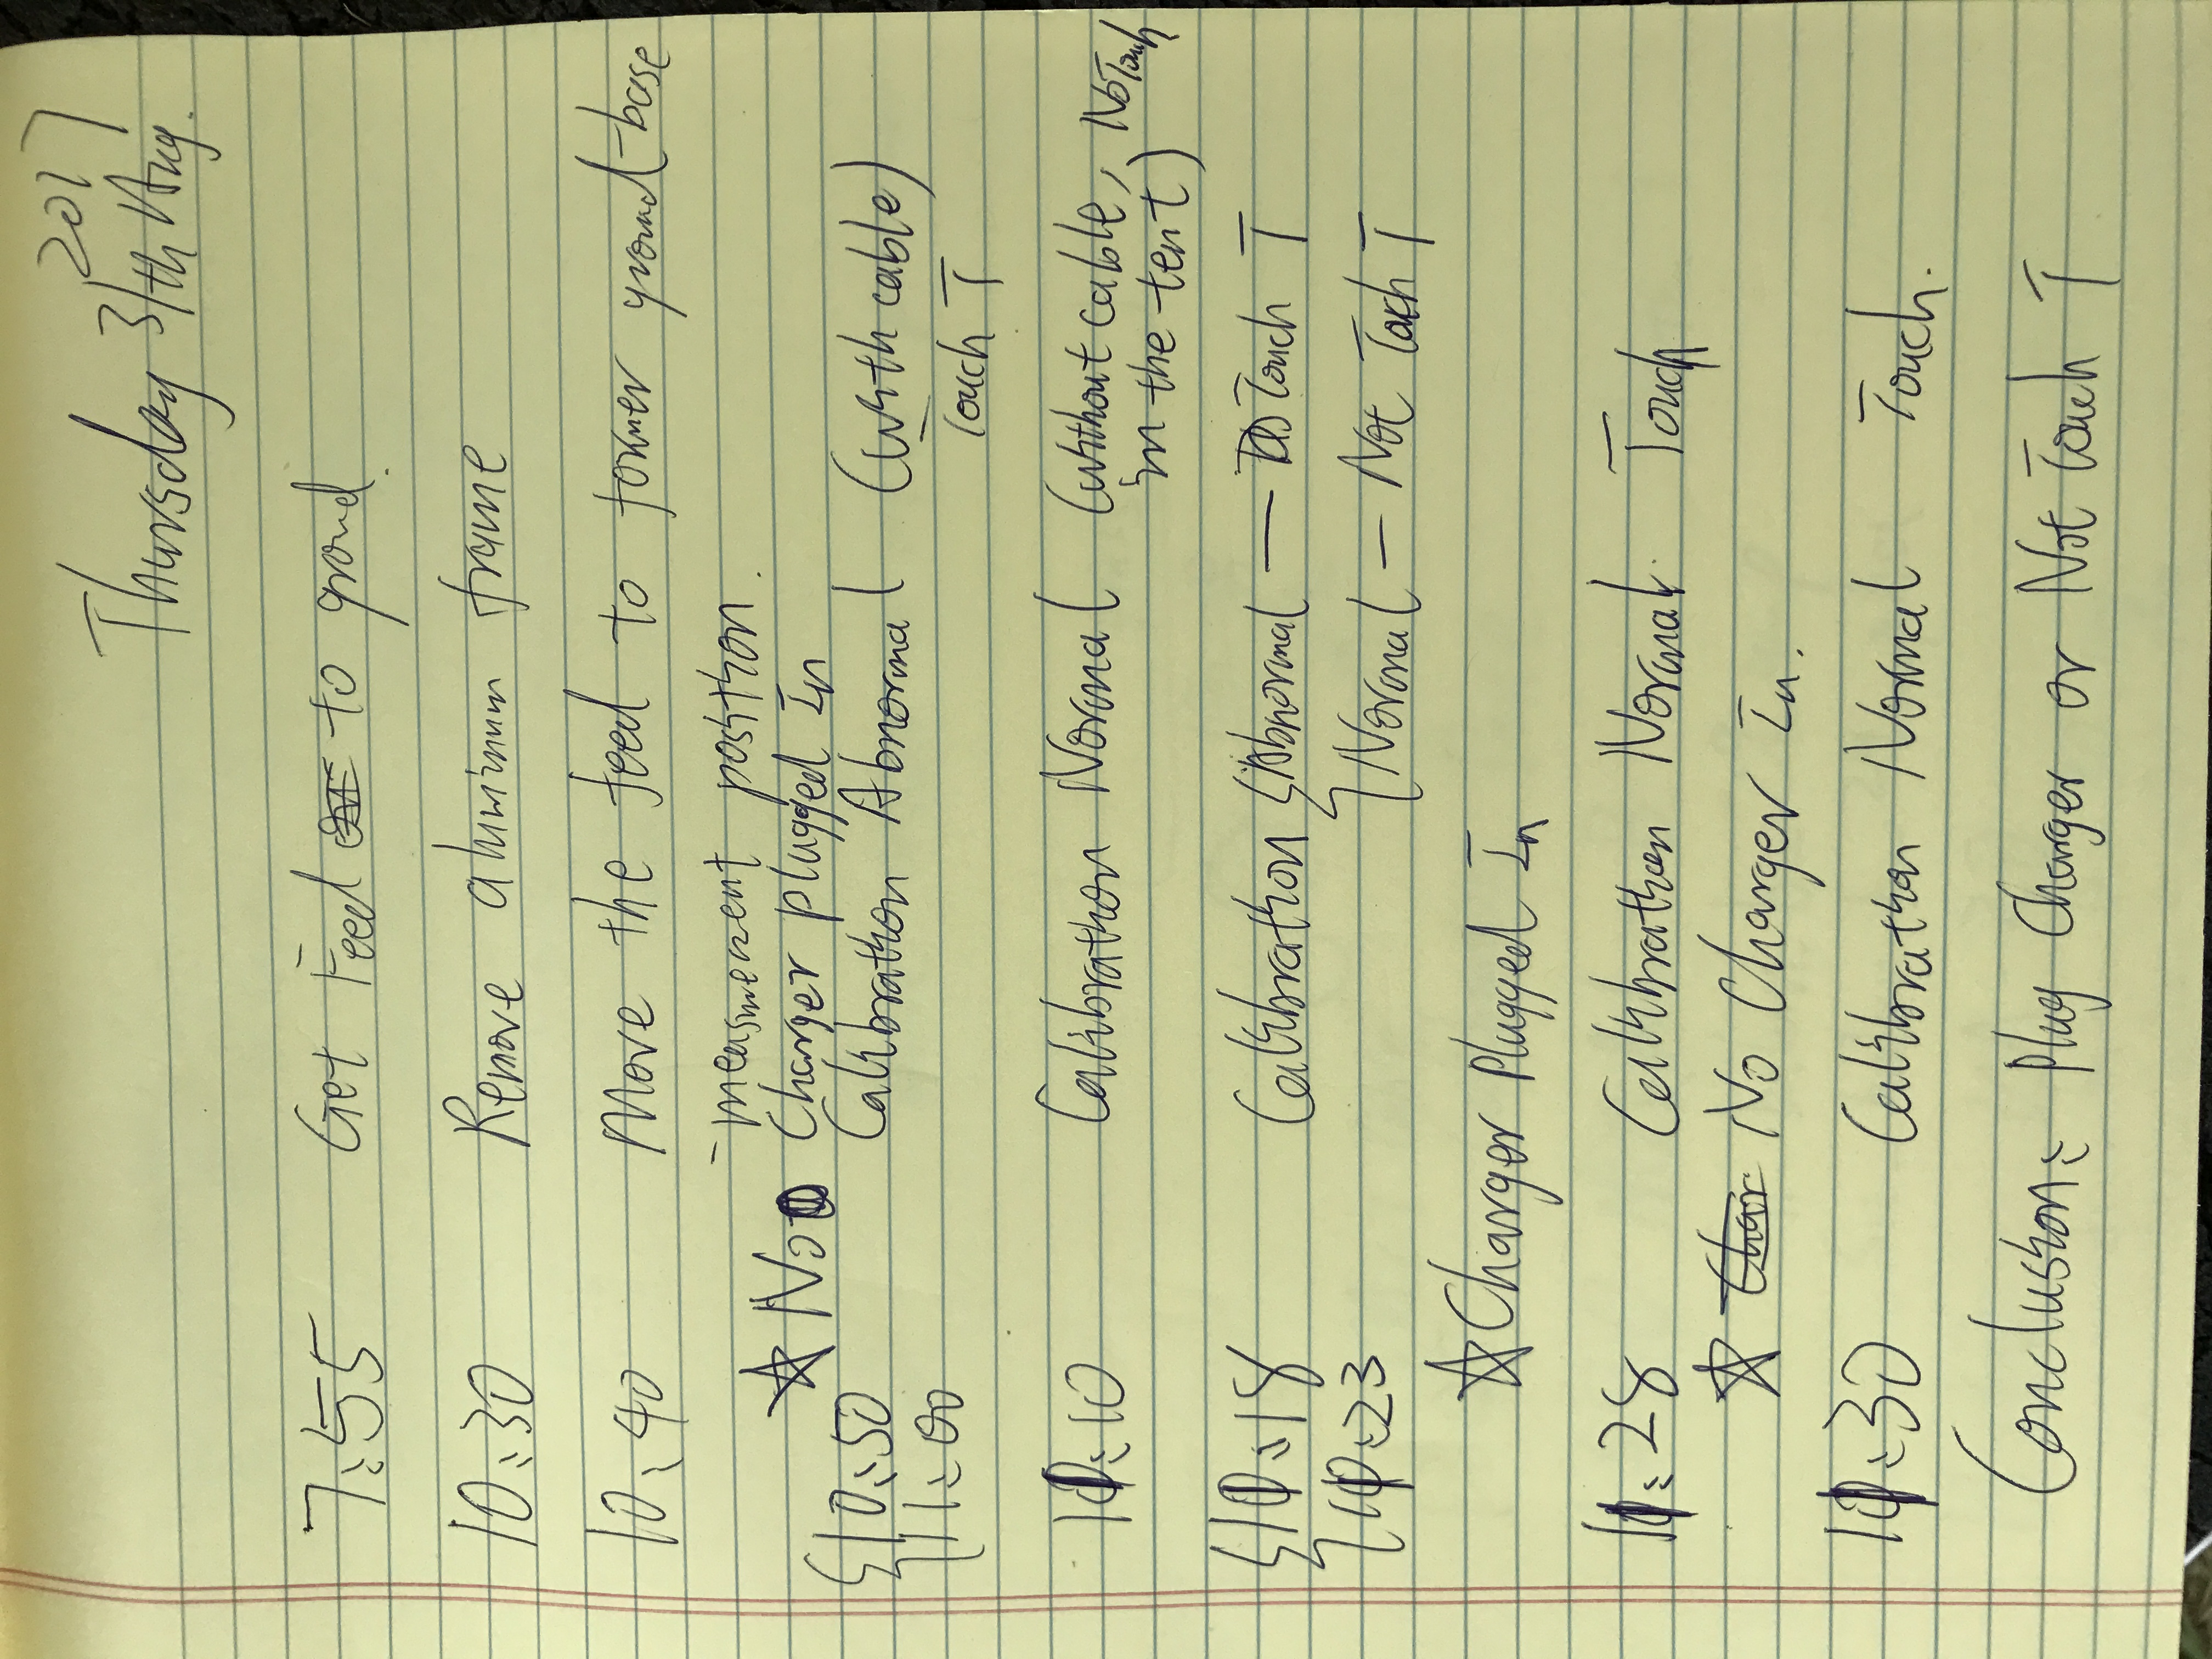 2017
Thursday 31th Aug.
7:55 Get Feed to ground.
10:30 Remove aluminum frame
10:40 Move the feed to former ground-base
measurement position.
☆ No Charger plugged in
{10:50 Calibration Abnormal (with cable)
{11:00 Touch T
11:10 Calibration Normal (without cable, No Touch
in the tent)
{11:18 Calibration {Abnormal — Touch T
{11:23 {Normal — Not Touch T
☆ Charger Plugged in
11:28 Calibration Normal. Touch
☆ No Charger in.
11:30 Calibration Normal Touch.
Conclusion: Plug Charger or Not Touch T